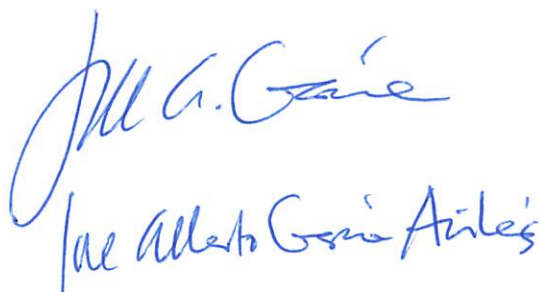 José A. García
José Alberto García Avilés